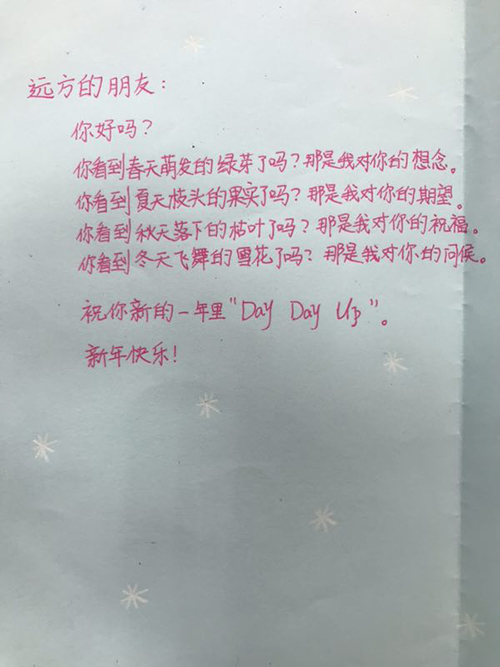 远方的朋友：
你好吗？
你看到春天萌发的绿芽了吗？那是我对你的想念。
你看到夏天枝头的果实了吗？那是我对你的期望。
你看到秋天落下的枝叶了吗？那是我对你的祝福。
你看到冬天飞舞的雪花了吗？那是我对你的问候。
祝你新的一年里“Day Day Up”。
新年快乐！